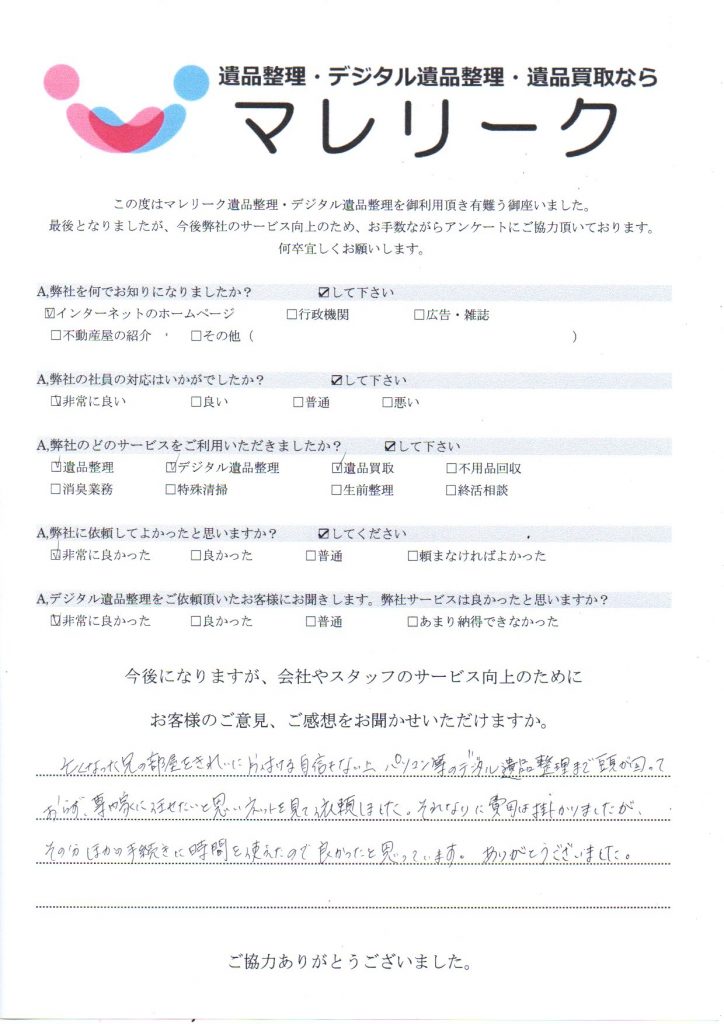 遺品整理・デジタル遺品整理・遺品買取なら
マレリーク
この度はマレリーク遺品整理・デジタル遺品整理を御利用頂き有難う御座いました。
最後となりましたが、今後弊社のサービス向上のため、お手数ながらアンケートにご協力頂いております。
何卒宜しくお願いします。
A,弊社を何でお知りになりましたか? ☑して下さい
☑インターネットのホームページ □行政機関 □広告・雑誌
□不動産屋の紹介 □その他( )
A,弊社の社員の対応はいかがでしたか? ☑して下さい
☑非常に良い □良い □普通 □悪い
A,弊社のどのサービスをご利用いただきましたか? ☑して下さい
☑遺品整理 ☑デジタル遺品整理 ☑遺品買取 □不用品回収
□消臭業務 □特殊清掃 □生前整理 □終活相談
A,弊社に依頼してよかったと思いますか? ☑してください
☑非常に良かった □良かった □普通 □頼まなければよかった
A,デジタル遺品整理をご依頼頂いたお客様にお聞きします。弊社サービスは良かったと思いますか?
☑非常に良かった □良かった □普通 □あまり納得できなかった
今後になりますが、会社やスタッフのサービス向上のために
お客様のご意見、ご感想をお聞かせいただけますか。
亡くなった兄の部屋をきれいに片付ける自信もない上 パソコン等のデジタル遺品整理まで頭が回って
おらず、専門家に任せたいと思いネットを見て依頼しました。それなりに費用は掛かりましたが、
その分ほかの手続きに時間を使えたので良かったと思っています。ありがとうございました。
ご協力ありがとうございました。